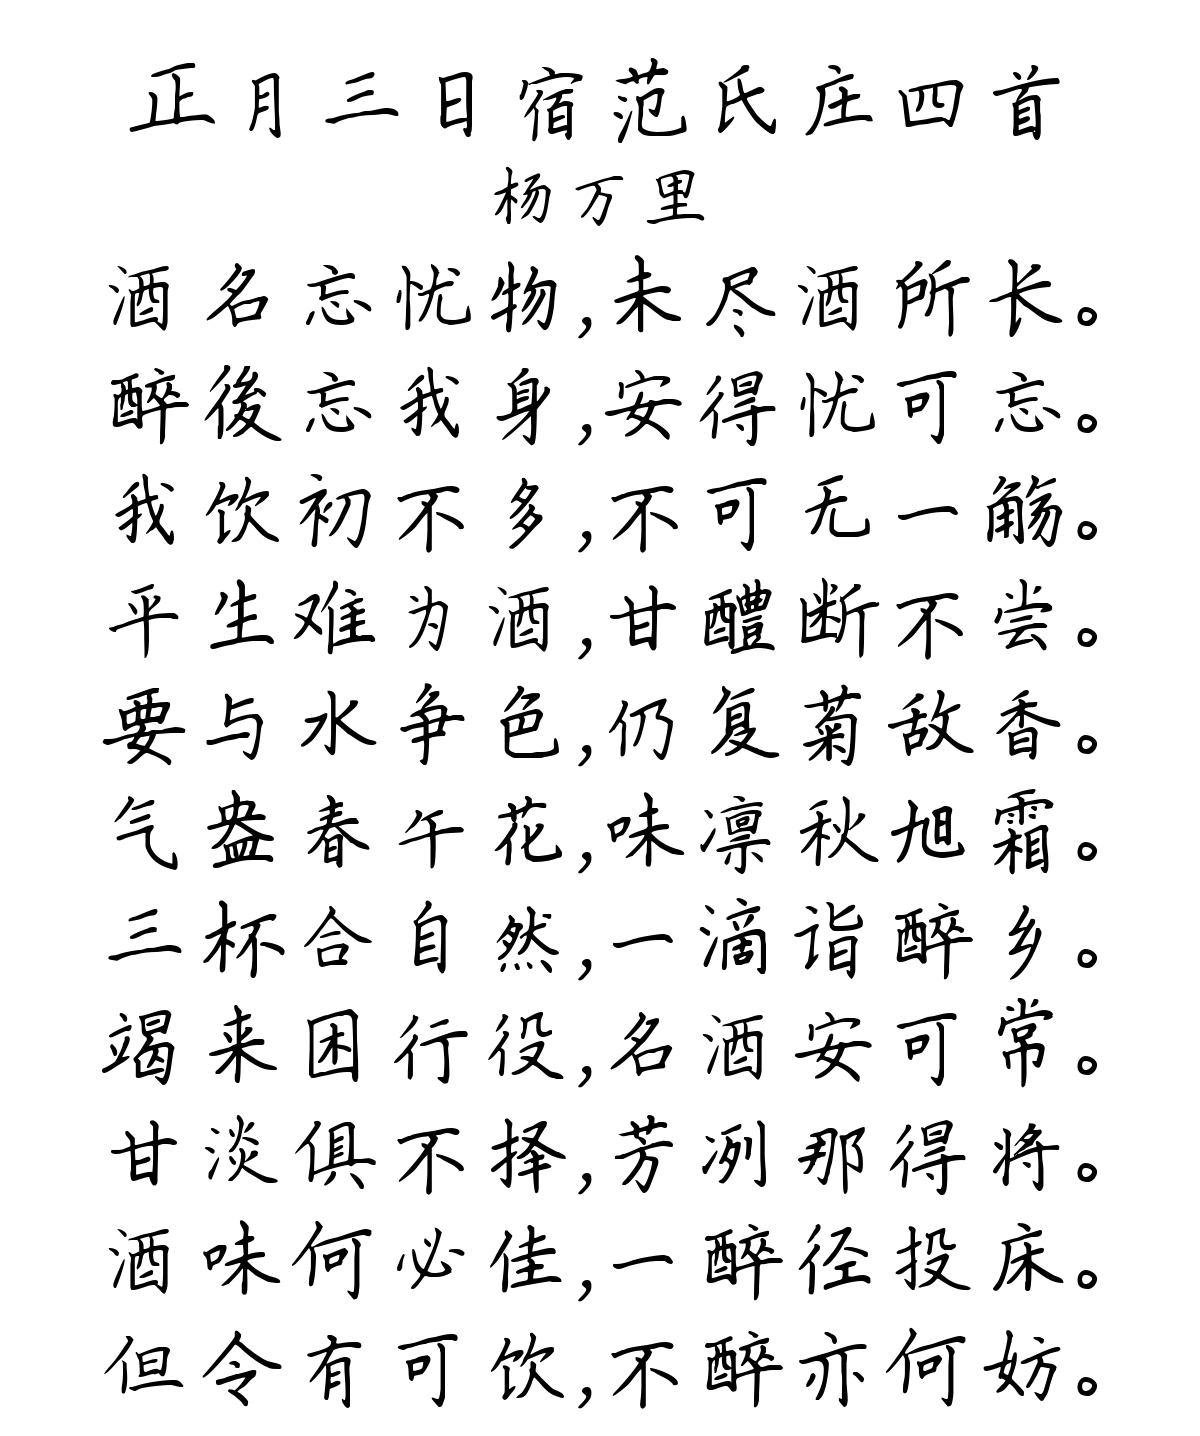 正月三日宿范氏庄四首
杨万里
酒名忘忧物,未尽酒所长。
醉後忘我身,安得忧可忘。
我饮初不多,不可无一觞。
平生难为酒,甘醴断不尝。
要与水争色,仍复菊敌香。
气盎春午花,味凛秋旭霜。
三杯合自然,一滴诣醉乡。
竭来困行役,名酒安可常。
甘淡俱不择,芳冽那得将。
酒味何必佳,一醉径投床。
但令有可饮,不醉亦何妨。